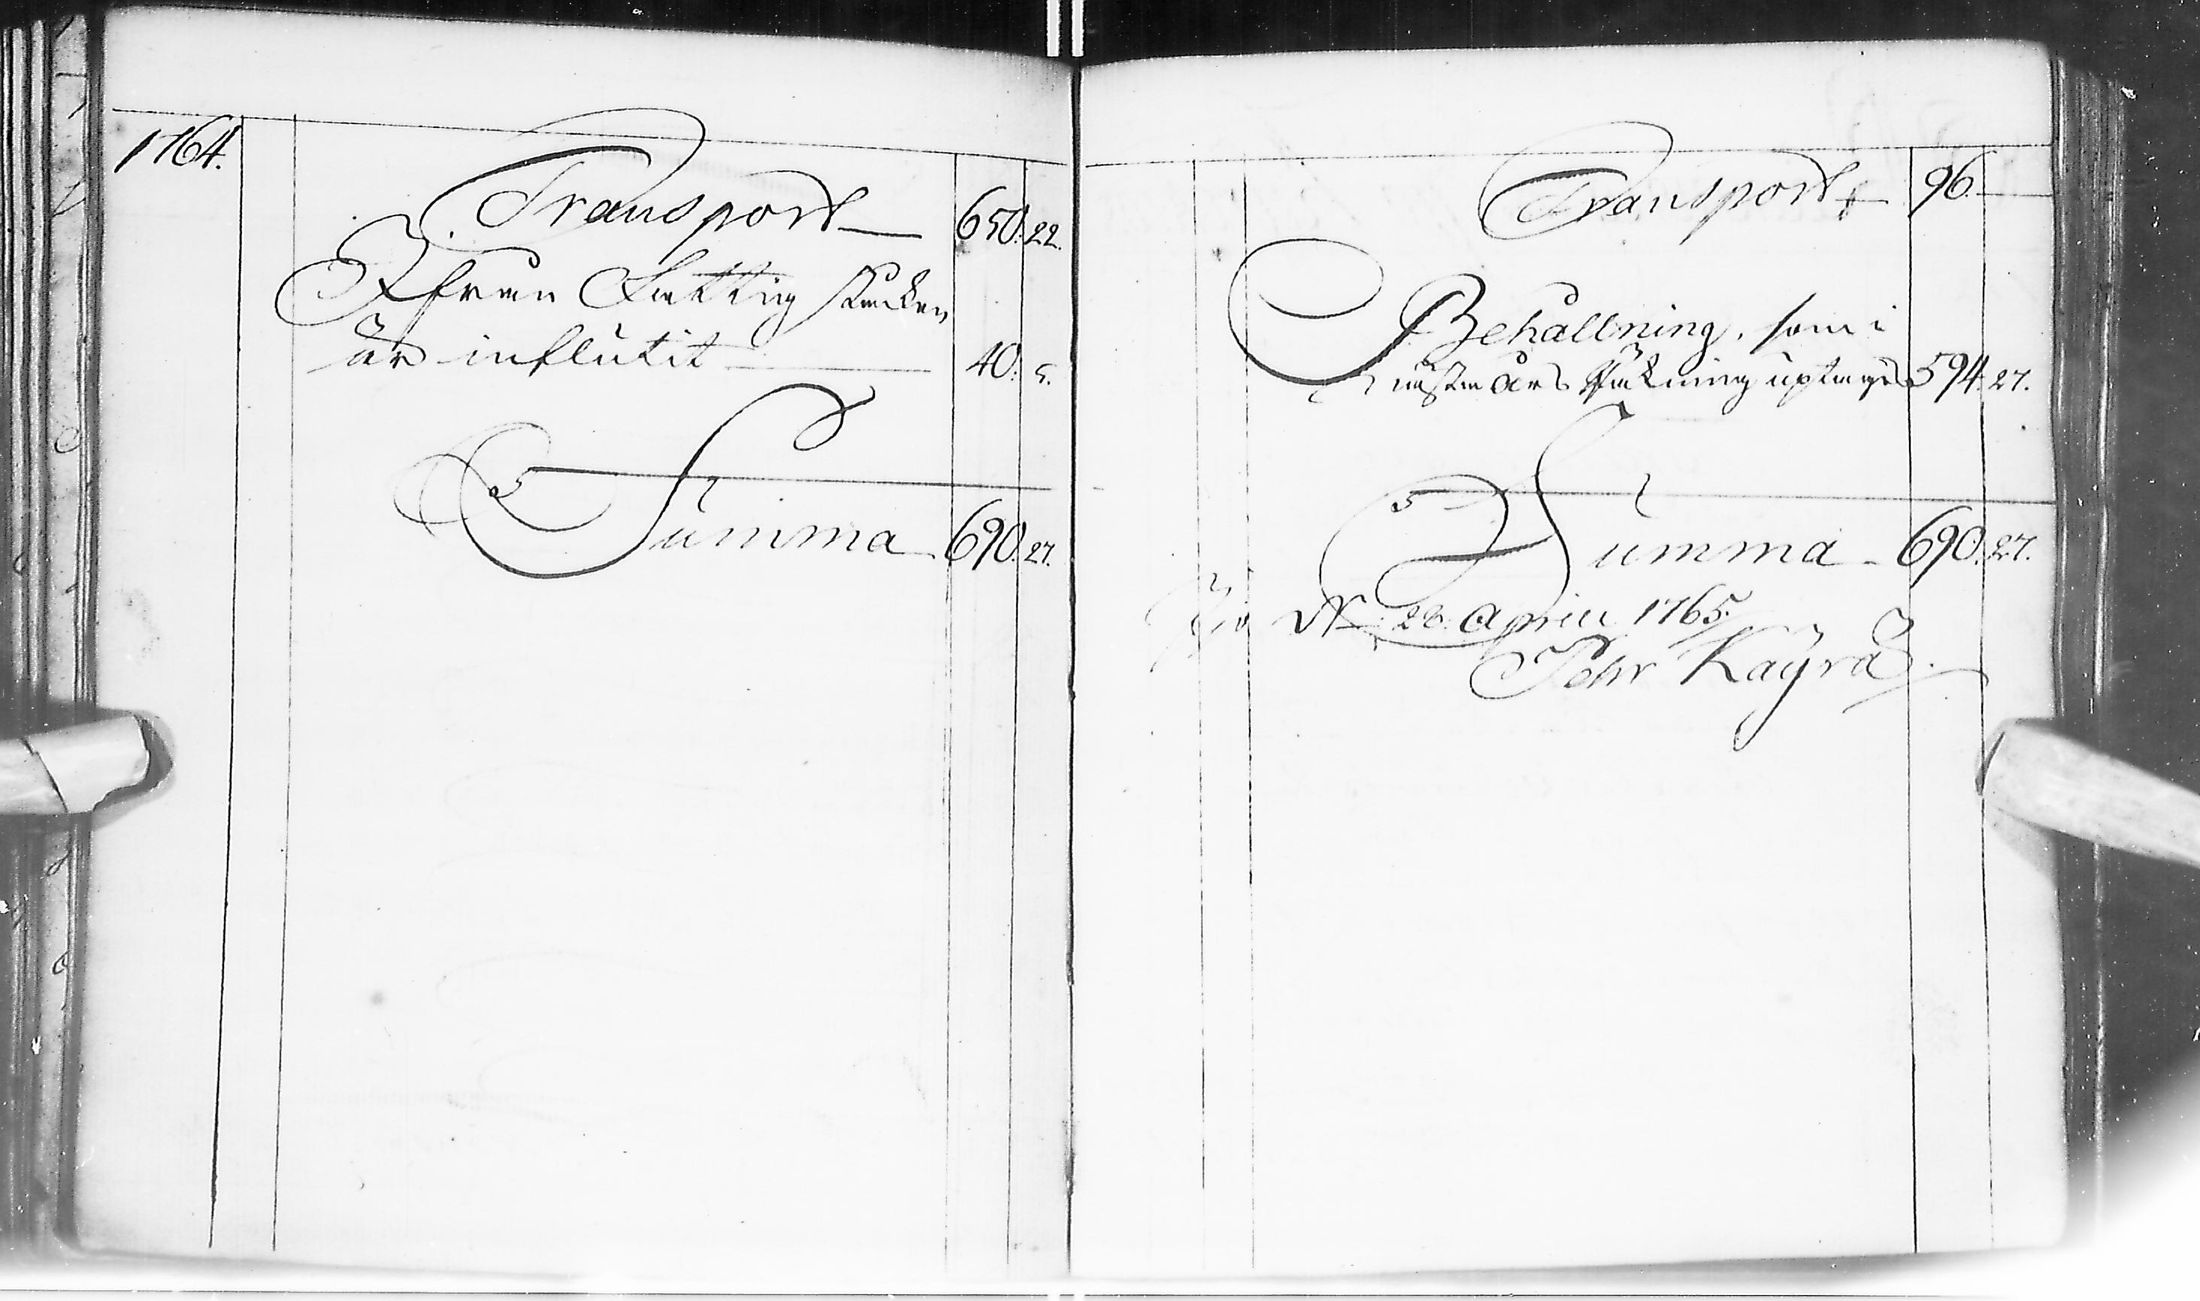 1764.
Transport 650. 22.
Ifrån Fattig stocken
är influtit 40. 5.
Summa 690. 27.
Transport 96.
Behållning, som i
nästa års Räkning uptages 594. 27.
Summa 690. 27.
22. April 1765.
Pehr Kayrå